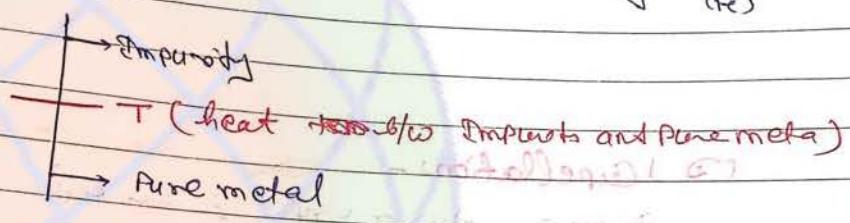 (Fe)
→ Impurity
T (heat b/w Impurets and Pure meta)
→ Pure metal